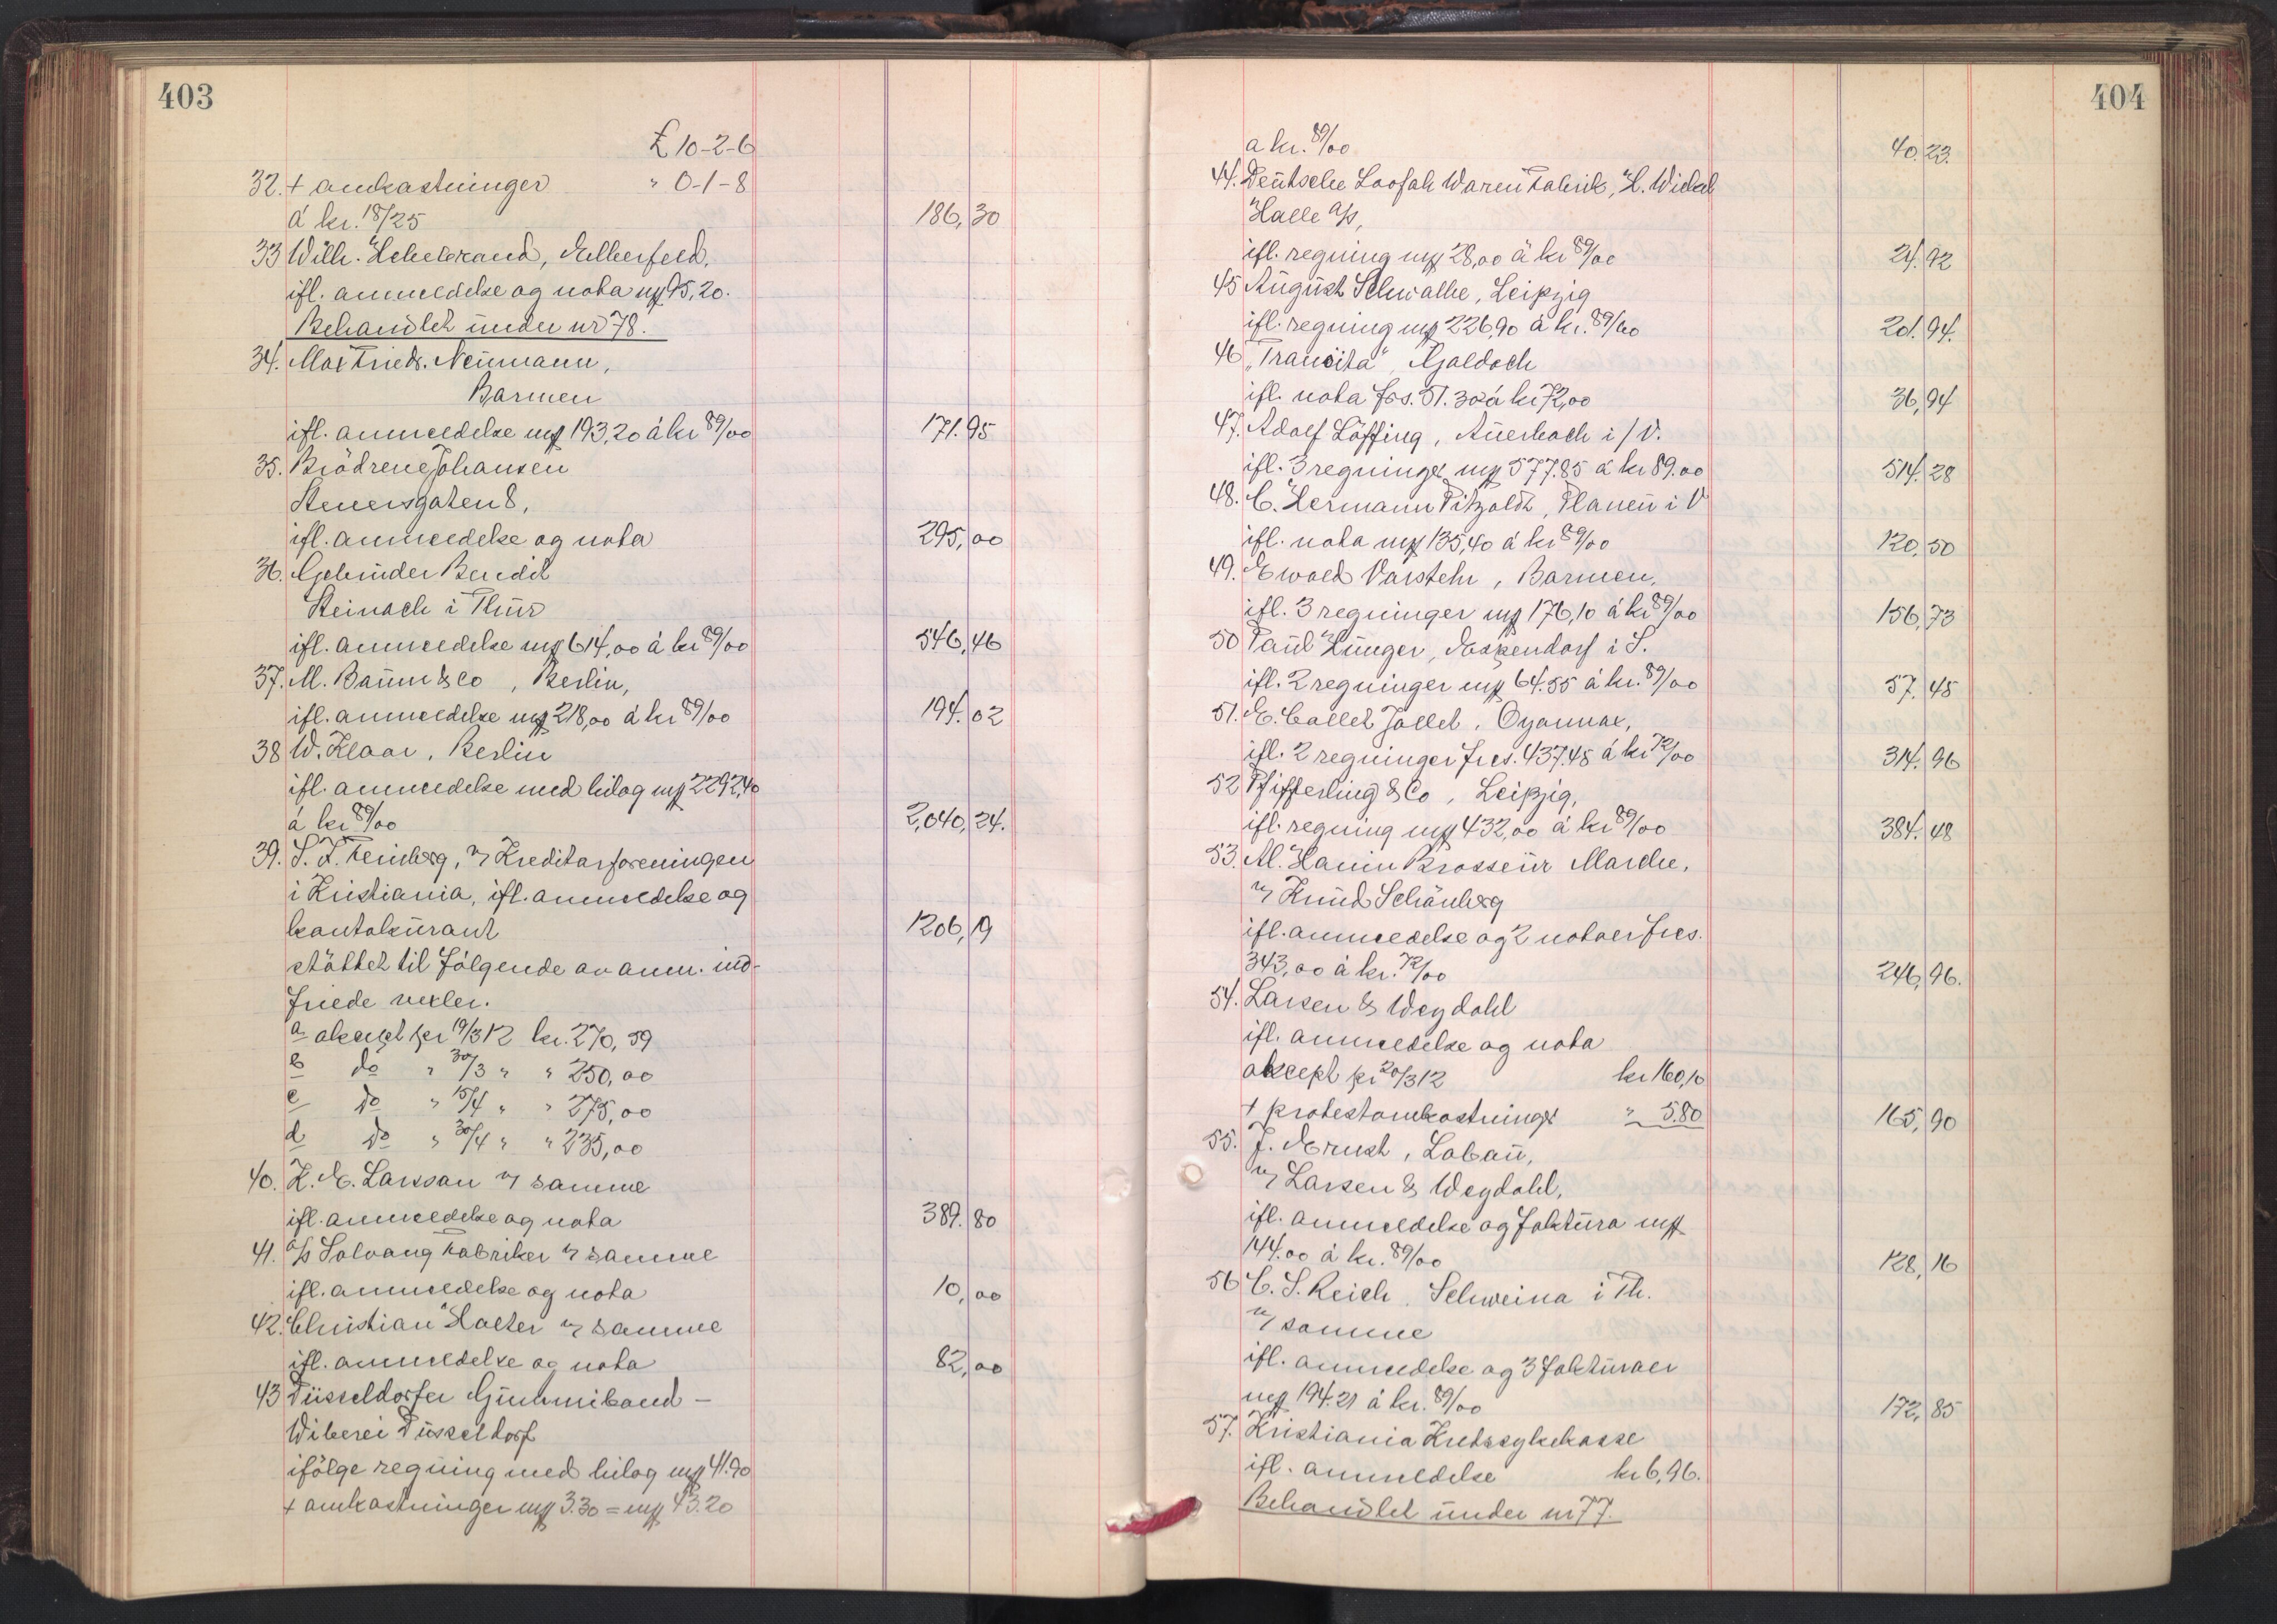 403
£ 10-2-6
32. + omkostninger " 0-1-8
á kr. 18/25 186,30
33 Wilh. Hebebrand, Elberfeld,
ifl. anmeldelse og nota mk 95,20.
Behandlet under nr 78.
34. Max Friedr. Neumann,
Barmen
ifl. anmeldelse mk 193,20 á kr 89/00 171.95
35. Brödrene Johansen
Stenersgaten 8,
ifl. anmeldelse og nota 295,00
36. Gebrüder Bendit
Steinach i Thür
ifl. anmeldelse mk 614,00 á kr 89/00 546,46
37. M. Baum & Co, Berlin,
ifl. anmeldelse mk 218,00 á kr 89/00 194.02
38 W. Klaar, Berlin
ifl. anmeldelse med bilag mk 2292,40
á kr 89/00 2,040,24.
39. S. F. Feinberg, v/ Kreditorforeningen
i Kristiania, ifl. anmeldelse og
kontokurant 1206,19
støttet til følgende av anm. ind-
friede vexler.
a aksept pr 19/3 12 kr. 270,59
b do " 30/3 " " 250,00
c do " 15/4 " " 275,00
d do " 30/4 " " 235,00
40. K. E. Larsson v/ samme
ifl. anmeldelse og nota 389.80
41. A/S Solvang Fabriker v/ samme
ifl. anmeldelse og nota 10,00
42. Christian Holter v/ samme
ifl. anmeldelse og nota 82,00
43 Düsseldorfer Gummiband-
Weberei Düsseldorf
ifölge regning med bilag mk 41.90
+ omkostninger mk 3.30 = mk 43.20
404
a kr. 89/00 40.23.
44. Deutsche Loofah Waren Fabrik, H. Wickel
Halle a/s,
ifl. regning mk 28,00 á kr 89/00 24.92
45 August Schwalbe, Leipzig
ifl. regning mk 226,90 á kr. 89/00 201.94.
46 "Transita", Goldach
ifl. nota frs. 51.30 á kr 72,00 36,94
47. Adolf Löffing, Auerbach i/V.
ifl. 3 regninger mk 577.85 á kr 89.00 514.28
48. C. Hermann Pitzoldt, Plauen i V
ifl. nota mk 135,40 á kr 89/00 120,50
49. Ewald Vorsteher, Barmen,
ifl. 3 regninger mk 176,10 á kr 89/00 156,73
50 Paul Hunger, Eppendorf i S.
ifl. 2 regninger mk 64.55 á kr. 89/00 57.45
51. E. Collet Jollet, Oyonnax,
ifl. 2 regninger frcs. 437.45 á kr 72/00 314.96
52 Pfifferling & Co, Leipzig,
ifl. regning mk 432,00 á kr 89/00 384.48
53. Al. Hamm Brosseur Marche,
v/ Knud Schönberg
ifl. anmeldelse og 2 notaer frcs.
343,00 á kr. 72/00 246,96.
54. Larsen & Weydahl
ifl. anmeldelse og nota
aksept pr 20/3 12 kr 160,10
+ protestomkostninger " 5.80 165,90
55. J. Ernst, Lobau,
v/ Larsen & Weydahl,
ifl. anmeldelse og faktura mk
144.00 á kr. 89/00 128,16
56 C. S. Reich, Schweina i Th.
v/ samme
ifl. anmeldelse og 3 fakturaer
mk 194.21 á kr. 89/00 172,85
57. Kristiania Kretssykekasse
ifl. anmeldelse kr 6,96.
Behandlet under nr 77.